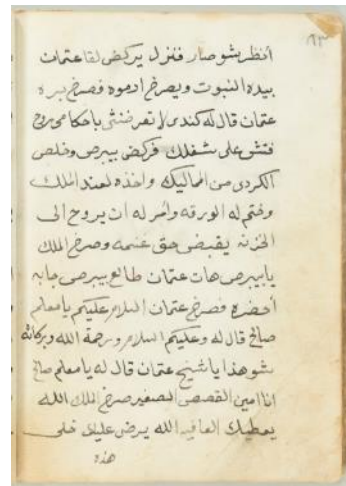 ١٩٣
انظر بشو صار فنزل يركض لقا عتمان
بيده النبوت ويصرخ ادموه فصرخ بيره
عتمان قال له كندى لا تعرضنى باحكامى روح
فتش على شغلك فركض بيبرص وخلص
الكردى من المماليك واخذه لعند الملك
وختم له الورقه وامر له ان يروح الى
الخزنه يقبض حق غنمه وصرخ الملك
يا بيبرص هات عتمان طالع بيبرص جابه
احضره فصرخ عتمان السلام عليكم يا معلم
صالح قال له وعليكم السلام ورحمة الله وبركاته
شو هذا يا شيخ عتمان قال له يا معلم صالح
انا امين القصص الصغير صرخ الملك الله
يعطيك العافيه الله يرض عليك خلى
هذه